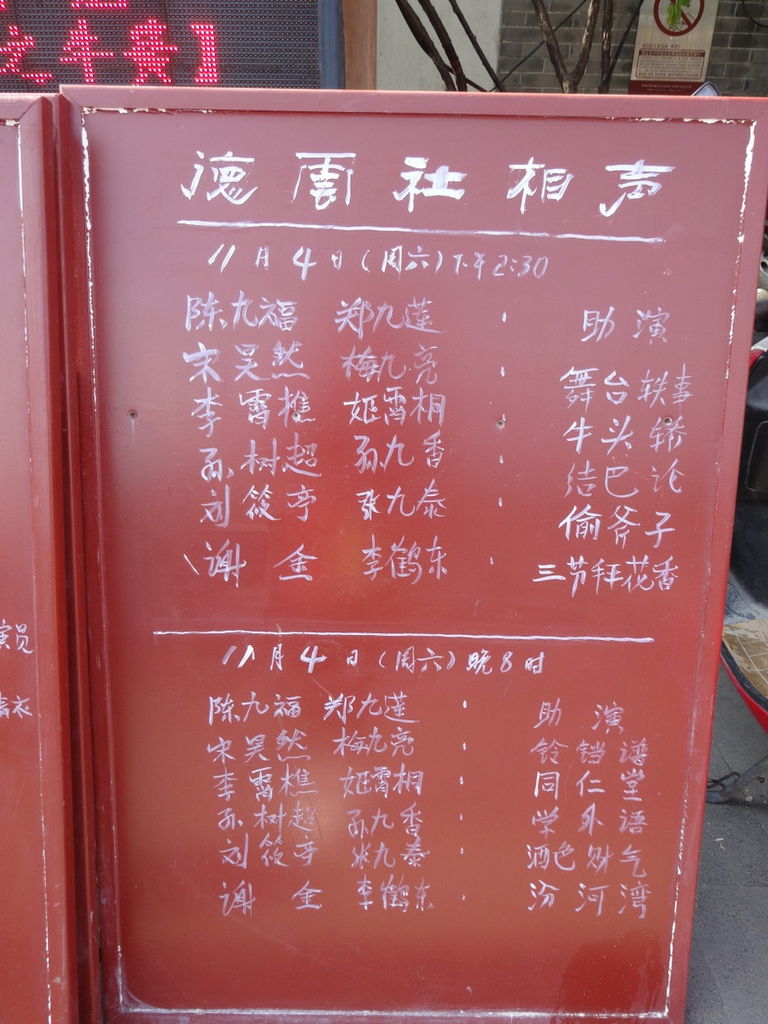 之牛贵】
德雲社相声
11月4日(周六)下午2:30
陈九福 郑九莲 · 助演
宋昊然 梅九亮 · 舞台轶事
李霄樵 姬霄桐 · 牛头轿
孙树超 孙九香 · 结巴论
刘筱亭 张九泰 · 偷斧子
谢金 李鹤东 · 三节拜花香
11月4日(周六)晚8时
陈九福 郑九莲 · 助演
宋昊然 梅九亮 · 铃铛谱
李霄樵 姬霄桐 · 同仁堂
孙树超 孙九香 · 学外语
刘筱亭 张九泰 · 酒色财气
谢金 李鹤东 · 汾河湾
演员
青衣